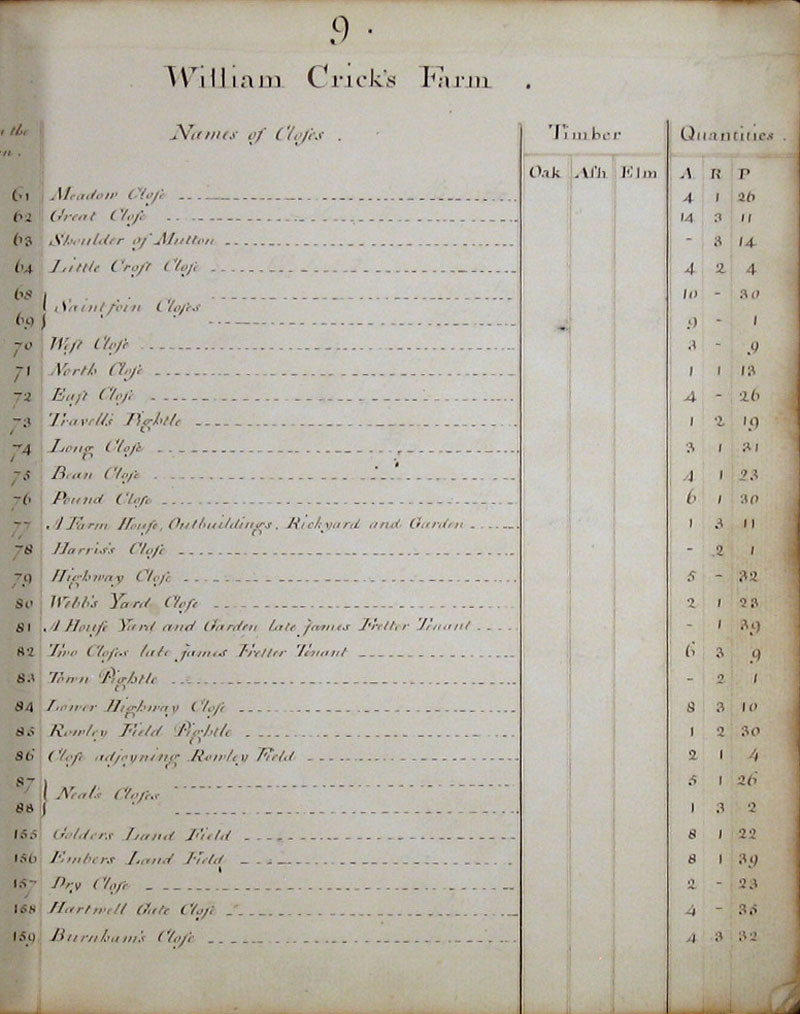 9.
William Crick's Farm.
the Names of Closes. Timber Quantities.
Oak Ash Elm A R P
61 Meadow Close 4 1 26
62 Great Close 14 3 11
63 Shoulder of Mutton - 3 14
64 Little Croft Close 4 2 4
68 10 - 30
Saintfoin Closes
69 9 - 1
70 West Close 3 - 9
71 North Close 1 1 13
72 East Close 4 - 26
73 Travell's Pightle 1 2 19
74 Long Close 3 1 31
75 Bean Close 4 1 23
76 Pound Close 6 1 30
77 A Farm House, Outbuildings, Rickyard and Garden 1 3 11
78 Harris's Close - 2 1
79 Highway Close 5 - 32
80 Webb's Yard Close 2 1 23
81 A House Yard and Garden late James Fretter Tenant - 1 39
82 Two Closes late James Fretter Tenant 6 3 9
83 Town Pightle - 2 1
84 Lower Highway Close 8 3 10
85 Rowley Field Pightle 1 2 30
86 Close adjoyning Rowley Field 2 1 4
87 5 1 26
Neal's Closes
88 1 3 2
155 Golders Land Field 8 1 22
156 Embers Land Field 8 1 39
157 Dry Close 2 - 23
158 Hartwell Gate Close 4 - 35
159 Burnham's Close 4 3 32